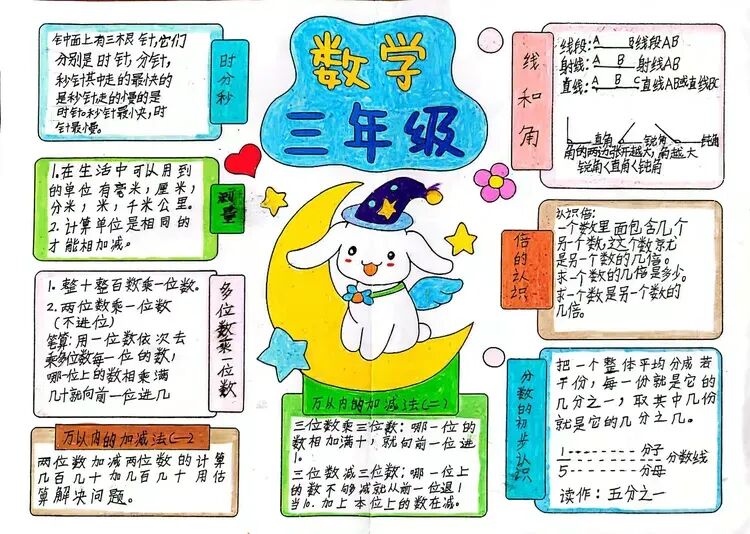 数学
三年级
时分秒
钟面上有三根针,它们
分别是时针,分针,
秒针其中走的最快的
是秒针走的慢的是
时针。秒针最快,时
针最慢。
测量
1.在生活中可以用到
的单位有毫米,厘米,
分米,米,千米公里。
2.计算单位是相同的
才能相加减。
多位数乘一位数
1.整十整百数乘一位数。
2.两位数乘一位数
(不进位)
笔算:用一位数依次去
乘多位数每一位的数,
哪一位上的数相乘满
几十就向前一位进几
万以内的加减法(一)
两位数加减两位数的计算
几百几十加几百几十用估
算解决问题。
万以内的加减法(二)
三位数乘三位数:哪一位的
数相加满十,就向前一位进
1.
三位数减三位数:哪一位上
的数不够减就从前一位退1
当10.加上本位上的数在减。
线和角
线段:A B线段AB
射线:A B 射线AB
直线:A B C直线AB或直线BC
直角 锐角 钝角
角的两边张开越大,角越大
锐角<直角<钝角
倍的认识
认识倍:
一个数里面包含几个
另一个数,这个数就
是另一个数的几倍。
求一个数的几倍是多少。
求一个数是另一个数的
几倍。
分数的初步认识
把一个整体平均分成若
干份,每一份就是它的
几分之一,取其中几份
就是它的几分之几。
1 分子
分数线
5 分母
读作:五分之一